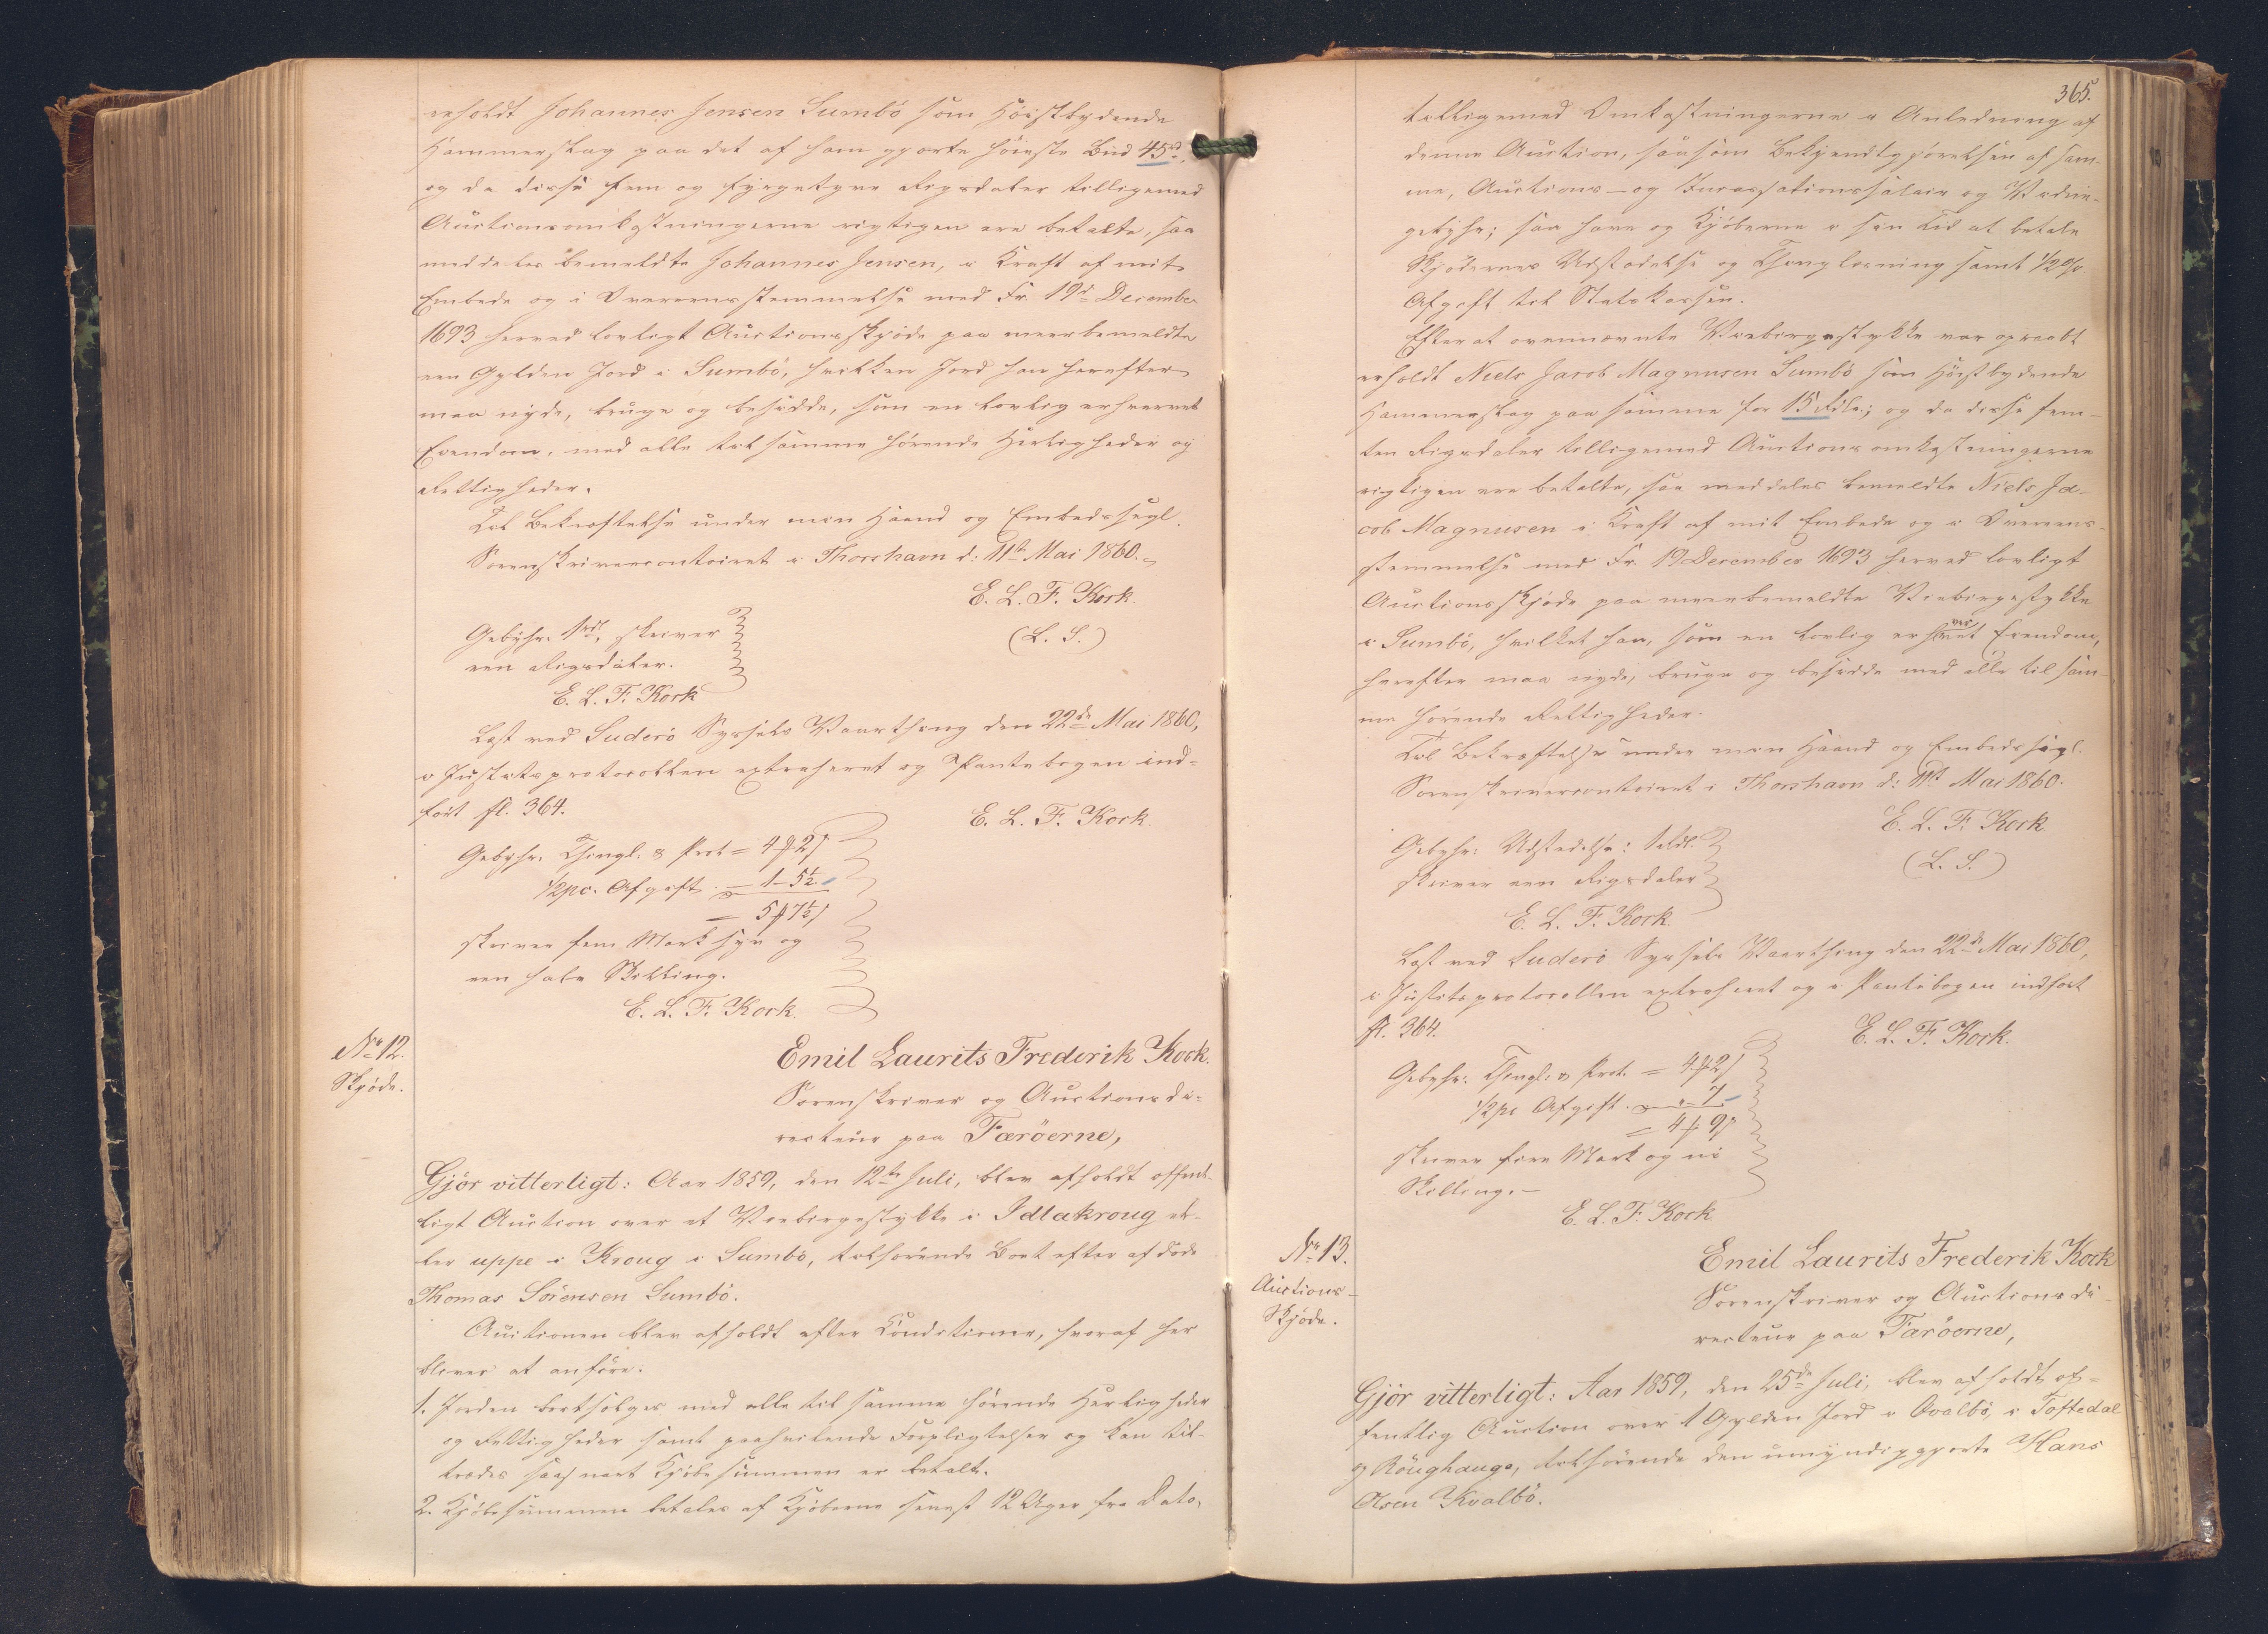 erholdt Johannes Jensen Sumbö som Höistbydende
Hammerslag paa det af ham gjorte höieste Bud 45rd,
og da disse fem og fyrgetyve Rigsdaler tilligemed
Auctionsomkostningerne rigtigen ere betalte, saa
meddeles bemeldte Johannes Jensen, i Kraft af mit
Embede og i Overeensstemmelse med Fr. 19d December
1693 herved lovligt Auctionsskjöde paa meerbemeldte
een Gylden Jord i Sumbö, hvilken Jord han herefter
maa nyde, bruge og besidde, som en lovlig erhvervet
Eiendom, med alle til samme hörende Herligheder og
Rettigheder.
Til Bekræftelse under min Haand og Embedssegl.
Sorenskrivercontoiret i Thorshavn d: 11te Mai 1860.
E. L. F. Kock.
(L. S.)
Gebyhr: 1rdl, skriver
een Rigsdaler.
E. L. F. Kock
Læst ved Suderö Syssels Vaarthing den 22de Mai 1860,
i Justitsprotocollen extraheret og Pantebogen ind-
fört fl. 364.
E. L. F. Kock.
Gebyhr. Thingl. & Prot = 4 ℔ 2 ß
1/2pc. Afgift = 1 - 5 1/2
= 5 ℔ 7 1/2 ß
skriver fem Mark syv og
een halv Skilling.
E. L. F. Kock.
No 12.
Skjöde.
Emil Laurits Frederik Kock.
Sorenskriver og Auctionsdi-
recteur paa Færöerne,
Gjör vitterligt: Aar 1859, den 12te Juli, blev afholdt offent-
ligt Auction over et Væbirgestykke i Idlakroug el-
ler uppe i Kroug i Sumbö, tilhörende Boet efter afdöde
Thomas Sörensen Sumbö.
Auctionen blev afholdt efter Conditioner, hvoraf her
bliver at anföre:
1. Jorden bortsælges med alle til samme hörende Herligheder
og Rettigheder samt paahvilende Forpligtelser og kan til-
trædes saasnart Kjöbesummen er betalt.
2. Kjöbesummen betales af Kjöberne senest 12 Uger fra Dato,
365.
tilligemed Omkostningerne i Anledning af
denne Auction, saasom Bekjendtgjörelsen af sam-
me, Auctions- og Incassationssalair og
gebyhr; saa have og Kjöberne i sin Tid at betale
Skjödernes Udstedelse og Thinglæsning samt 1/2 %
Afgift til Statskassen.
Efterat ovennævnte Væbirgestykke var opraabt
erholdt Niels Jacob Magnusen Sumbö som Höistbydende
Hammerslag paa samme for 15 Rdlr; og da disse fem-
ten Rigsdaler tilligemed Auctionsomkostningerne
rigtigen ere betalte, saa meddeles bemeldte Niels Ja-
cob Magnusen i Kraft af mit Embede og i Overeens-
stemmelse med Fr. 19 December 1693 herved lovligt
Auctionsskjöde paa meerbemeldte Væbirgestykke
i Sumbö, hvilket han, som en lovlig erhvervet Eiendom,
herefter maa nyde, bruge og besidde med alle til sam-
me hörende Rettigheder.
Til Bekræftelse under min Haand og Embedssegl.
Sorenskrivercontoiret i Thorshavn d: 11te Mai 1860.
E. L. F. Kock
(L. S.)
Gebyhr: Udstedelse: 1 Rdl.
skriver een Rigsdaler
E. L. F. Kock.
Læst ved Suderö Syssels Vaarthing den 22de Mai 1860,
i Justitsprotocollen extraheret og i Pantebogen indfört
fl. 364.
E. L. F. Kock.
Gebyhr: Thingl. & Prot. = 4 ℔ 2 ß
1/2pc Afgift = " - 7
= 4 ℔ 9 ß
skriver fire Mark og ni
Skilling.-
E. L. F. Kock
No 13.
Auctions-
Skjöde.
Emil Laurits Frederik Kock
Sorenskriver og Auctionsdi-
recteur paa Færöerne,
Gjör vitterligt: Aar 1859, den 25de Juli, blev afholdt of-
fentlig Auction over 1 Gylden Jord i Qvalbö, i Toftedal
og Röughauge, tilhörende den umyndiggjorte Hans
Olsen Kvalbö.